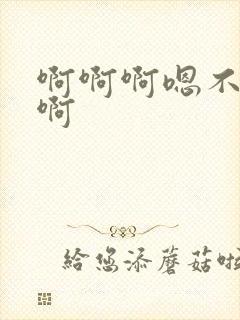 啊啊啊嗯不
啊
给您添蘑菇啦